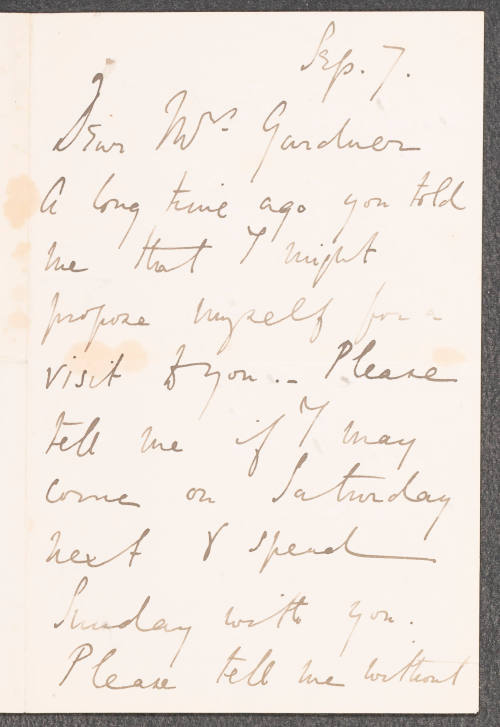 Sep. 7.
Dear Mrs Gardner
A long time ago you told
me that I might
propose myself for a
visit to you. – Please
tell me if I may
come on Saturday
next & spend
Sunday with you.
Please tell me without